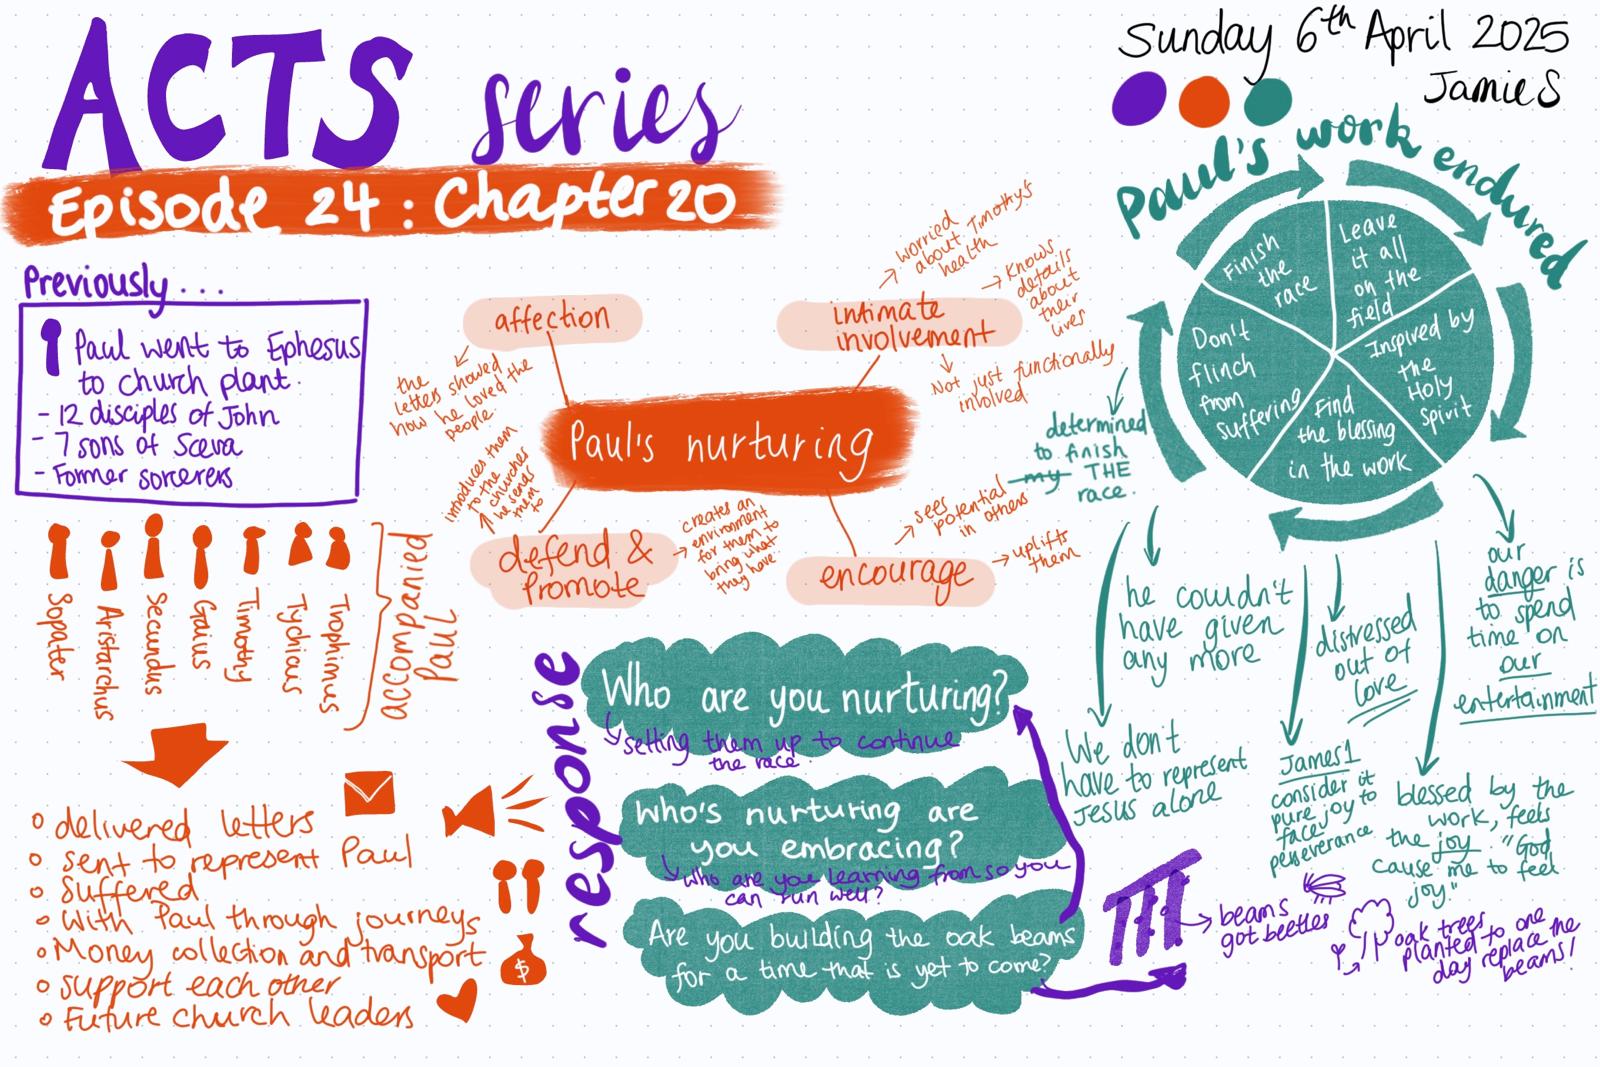 ACTS series
Episode 24 : Chapter 20
Sunday 6th April 2025
Jamie S
Previously...
Paul went to Ephesus
to church plant.
- 12 disciples of John
- 7 sons of Sceva
- Former sorcerers
Sopater
Aristarchus
Secundus
Gaius
Timothy
Tychicus
Trophimus
accompanied
Paul
delivered letters
sent to represent Paul
Suffered
With Paul through journeys
Money collection and transport
$
support each other
Future church leaders
Paul's nurturing
affection
the
letters showed
how he loved the
people.
intimate
involvement
worried
about Timothy's
health
Knows
details
about
their
lives
Not just functionally
involved
defend &
Promote
introduces them
to the churches
he sends
them
to
creates an
environment
for them to
bring what
they have
encourage
sees
potential
in others
uplifts
them
response
Who are you nurturing?
setting them up to continue
the race.
Who's nurturing are
you embracing?
Who are you learning from so you
can run well?
Are you building the oak beams
for a time that is yet to come?
beams
got beetles
oak trees
planted to one
day replace the
beams!
Paul's work endured
Finish
the
race
Leave
it all
on the
field
Inspired by
the
Holy
Spirit
Find
the blessing
in the work
Don't
flinch
from
suffering
determined
to finish
my THE
race.
he couldn't
have given
any more
We don't
have to represent
Jesus alone
distressed
out of
love
James 1
consider it
pure joy to
face joy to
perseverance
blessed by the
work, feels
the joy. "God
cause me to feel
joy."
our
danger is
to spend
time on
our
entertainment